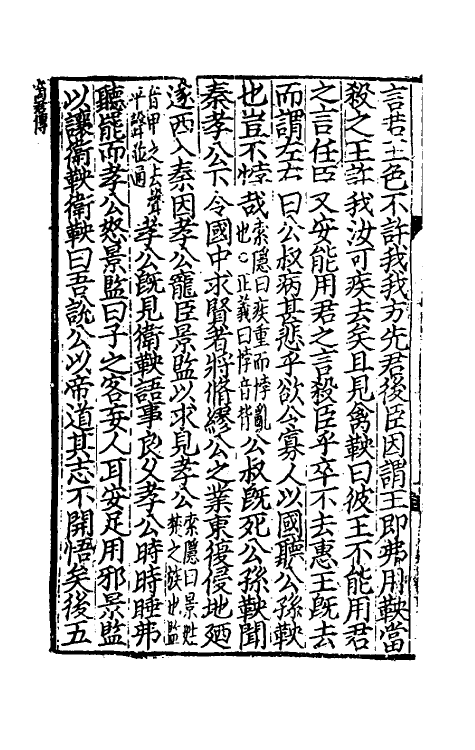 言若王色不許我我方先君後臣因謂王即弗用鞅當
殺之王許我汝可疾去矣且見禽鞅曰彼王不能用君
之言任臣又安能用君之言殺臣乎卒不去惠王既去
而謂左右曰公叔病甚悲乎欲令寡人以國聽公孫鞅
也豈不悖哉索隱曰疾重而悖亂也○正義曰悖音背公叔既死公孫鞅聞
秦孝公下令國中求賢者將脩繆公之業東復侵地廼
遂西入秦因孝公寵臣景監以求見孝公索隱曰景姓楚之族也監
音甲之去聲平聲並通孝公既見衛鞅語事良久孝公時時睡弗
聽罷而孝公怒景監曰子之客妄人耳安足用邪景監
以讓衛鞅衛鞅曰吾說公以帝道其志不開悟矣後五
商君傳